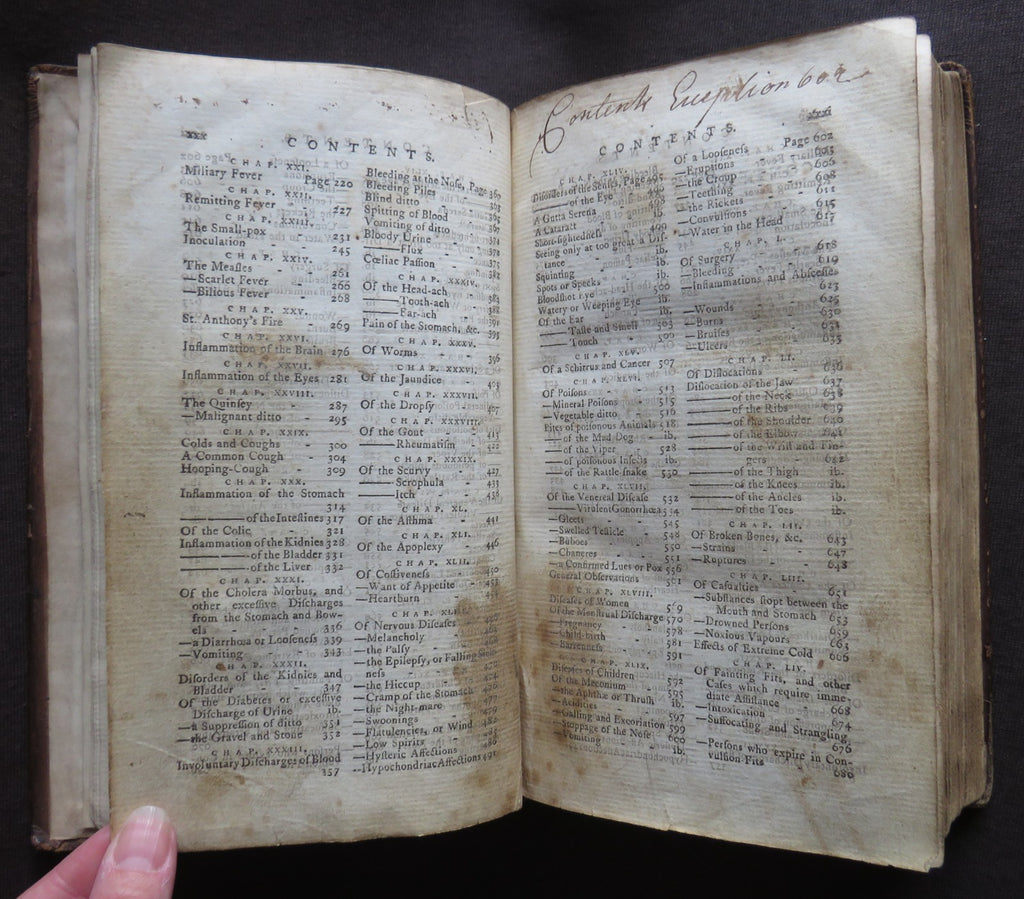 xxx
CONTENTS.
CHAP. XXI.
Miliary Fever Page 220
CHAP. XXII.
Remitting Fever 227
CHAP. XXIII.
The Small-pox 231
Inoculation 245
CHAP. XXIV.
The Meaſles - 261
—Scarlet Fever - 266
—Bilious Fever - 268
CHAP. XXV.
St. Anthony's Fire 269
CHAP. XXVI.
Inflammation of the Brain 276
CHAP. XXVII.
Inflammation of the Eyes 281
CHAP. XXVIII.
The Quinſey - 287
—Malignant ditto - 295
CHAP. XXIX.
Colds and Coughs - 300
A Common Cough - 304
Hooping-Cough - 309
CHAP. XXX.
Inflammation of the Stomach
314
———— of the Inteſtines 317
Of the Colic - 321
Inflammation of the Kidnies 328
———— of the Bladder 331
———— of the Liver 332
CHAP. XXXI.
Of the Cholera Morbus, and
other exceſſive Diſcharges
from the Stomach and Bow-
els - - 336
—a Diarrhœa or Looſeneſs 339
—Vomiting - - 343
CHAP. XXXII.
Diſorders of the Kidnies and
Bladder - 347
Of the Diabetes or exceſſive
Diſcharge of Urine ib.
—a Suppreſſion of ditto 351
—the Gravel and Stone 352
CHAP. XXXIII.
Involuntary Diſcharges of Blood
357
Bleeding at the Noſe, Page
Bleeding Piles
Blind ditto
Spitting of Blood
Vomiting of ditto
Bloody Urine
——Flux
Cœliac Paſſion
CHAP. XXXIV.
Of the Head-ach
——Tooth-ach
——Ear-ach
Pain of the Stomach, &c. 395
CHAP. XXXV.
Of Worms - - 396
CHAP. XXXVI.
Of the Jaundice - 403
CHAP. XXXVII.
Of the Dropſy - 407
CHAP. XXXVIII.
Of the Gout - 413
——Rheumatiſm 422
CHAP. XXXIX.
Of the Scurvy - 427
——Scrophula - 433
——Itch - - 438
CHAP. XL.
Of the Aſthma - 441
CHAP. XLI.
Of the Apoplexy - 446
CHAP. XLII.
Of Coſtiveneſs - 450
—Want of Appetite -
—Heartburn
CHAP. XLIII.
Of Nervous Diſeaſes
—Melancholy
—the Palſy
—the Epilepſy, or Falling Sick-
neſs
—the Hiccup
—Cramp of the Stomach
—the Night-mare
—Swoonings
—Flatulencies, or Wind
—Low Spirits
—Hyſteric Affections
—Hypochondriac Affections 491
Contents Exception 602
CONTENTS.
xxxi
CHAP. XLIV.
Diſorders of the Senſes, Page 495
——of the Eye
A Gutta Serena
A Cataract - ib.
Short-ſightedneſs 499
Seeing only at too great a Diſ-
tance - ib.
Squinting - ib.
Spots or Specks ib.
Bloodſhot Eye 500
Watery or Weeping Eye ib.
Of the Ear - ib.
——Taſte and Smell 503
——Touch - 506
CHAP. XLV.
Of a Schirrus and Cancer 507
CHAP. XLVI.
Of Poiſons - 513
—Mineral Poiſons - 515
—Vegetable ditto - 516
Bites of poiſonous Animals 518
——of the Mad Dog - ib.
——of the Viper - 528
——of poiſonous Inſects ib.
——of the Rattle-ſnake 530
CHAP. XLVII.
Of the Venereal Diſeaſe 532
——Virulent Gonorrhœa 534
—Gleets - 545
—Swelled Teſticle - 548
—Buboes - 550
—Chancres - 551
—a Confirmed Lues or Pox 556
General Obſervations 561
CHAP. XLVIII.
Diſeaſes of Women 569
Of the Menſtrual Diſcharge 570
—Pregnancy - 578
—Child-birth - 581
—Barrenneſs - 591
CHAP. XLIX.
Diſeaſes of Children 592
Of the Meconium - 595
—the Aphthæ or Thruſh ib.
—Acidities - 597
—Galling and Excoriation 599
—Stoppage of the Noſe 600
—Vomiting - ib.
Of a Looſeneſs Page 602
—Eruptions - 603
—the Croup - 606
—Teething - 608
—the Rickets - 611
—Convulſions - 615
—Water in the Head 617
CHAP. L.
Of Surgery - 618
—Bleeding - 619
—Inflammations and Abſceſſes
623
—Wounds - 625
—Burns - 630
—Bruiſes - 631
—Ulcers - 633
CHAP. LI.
Of Diſlocations - 636
Diſlocation of the Jaw 637
———of the Neck 638
———of the Ribs 639
———of the Shoulder 640
———of the Elbow 641
———of the Wriſt and Fin-
gers - 642
———of the Thigh ib.
———of the Knees ib.
———of the Ancles ib.
———of the Toes ib.
CHAP. LII.
Of Broken Bones, &c. 643
—Strains - 647
—Ruptures - 648
CHAP. LIII.
Of Caſualties - 651
—Subſtances ſtopt between the
Mouth and Stomach 653
—Drowned Perſons 659
—Noxious Vapours 663
Effects of Extreme Cold 666
CHAP. LIV.
Of Fainting Fits, and other
Caſes which require imme-
diate Aſſiſtance 668
—Intoxication - 674
—Suffocating and Strangling
676
—Perſons who expire in Con-
vulſion Fits - 680